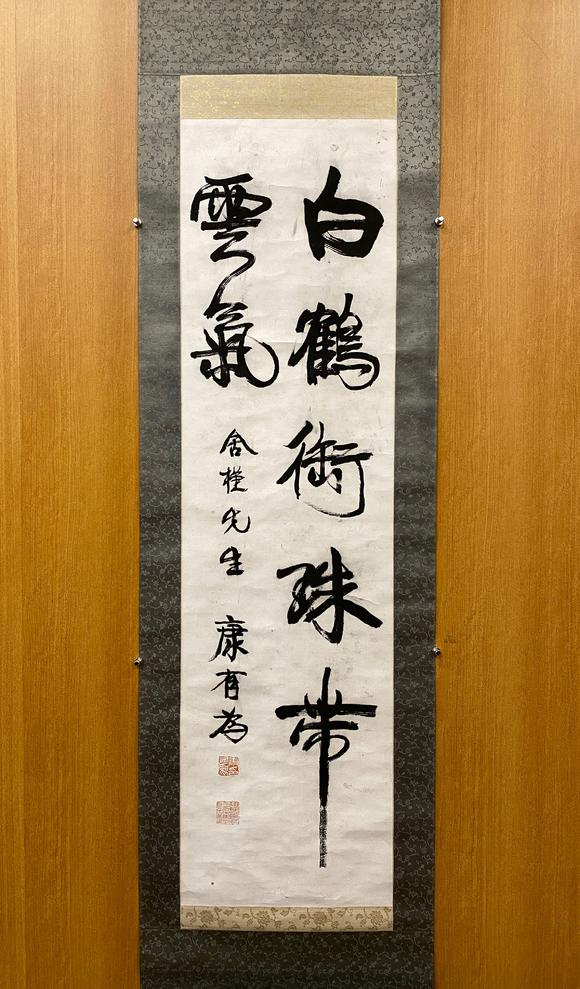 白鶴銜珠帶
雲氣
舍權先生
康有為